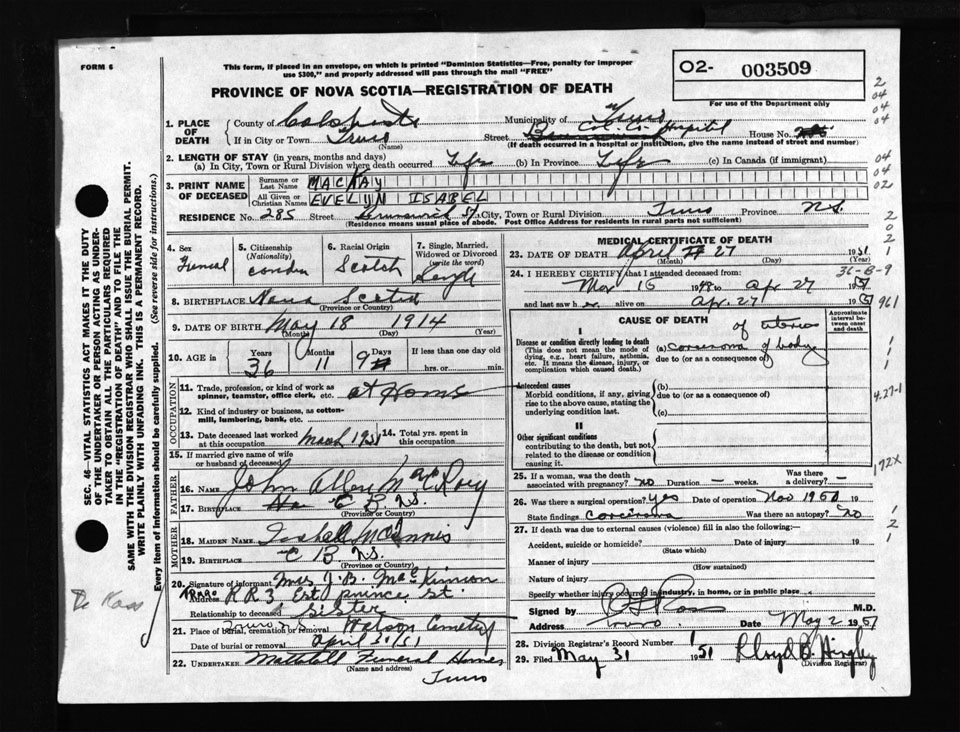 FORM 6
This form, if placed in an envelope, on which is printed "Dominion Statistics—Free, penalty for improper
use $300," and properly addressed will pass through the mail "FREE"
PROVINCE OF NOVA SCOTIA—REGISTRATION OF DEATH
O2- 003509
For use of the Department only
1. PLACE OF DEATH
County of Colchester Municipality of Truro
If in City or Town Truro (Name) Street Col. Co. Hospital House No.
(If death occurred in a hospital or institution, give the name instead of street and number)
2. LENGTH OF STAY (in years, months and days)
(a) In City, Town or Rural Division where death occurred Life (b) In Province Life (c) In Canada (if immigrant)
3. PRINT NAME OF DECEASED
Surname or Last Name MACKAY
All Given or Christian Names EVELYN ISABEL
RESIDENCE No. 285 Street Brunswick St City, Town or Rural Division Truro Province N.S.
Residence means usual place of abode. Post Office Address for residents in rural parts not sufficient)
4. Sex
5. Citizenship (Nationality)
6. Racial Origin Scotch
7. Single, Married, Widowed or Divorced (write the word) Single
8. BIRTHPLACE Nova Scotia
(Province or Country)
9. DATE OF BIRTH May 18 1914
(Month) (Day) (Year)
10. AGE in Years 36 Months 11 Days 9 If less than one day old hrs. or min.
OCCUPATION
11. Trade, profession, or kind of work as spinner, teamster, office clerk, etc. at Home
12. Kind of industry or business, as cotton-mill, lumbering, bank, etc.
13. Date deceased last worked at this occupation March 1951 14. Total yrs. spent in this occupation
15. If married give name of wife or husband of deceased
FATHER
16. Name John Allen
17. Birthplace C B N.S.
(Province or Country)
MOTHER
18. Maiden Name
19. Birthplace C B N.S.
(Province or Country)
20. Signature of informant Mrs J. B. MacKinnon
Address RR3 Truro Prince St.
Relationship to deceased Sister
21. Place of burial, cremation or removal Truro N.S. Watson Cemetery
Date of burial or removal April 30/51
22. UNDERTAKER Mattatall Funeral Home
(Name and address)
Truro
MEDICAL CERTIFICATE OF DEATH
23. DATE OF DEATH April 27 1951
(Month) (Day) (Year)
24. I HEREBY CERTIFY that I attended deceased from:
Apr 27
and last saw her alive on Apr. 27
CAUSE OF DEATH
Approximate interval between onset and death
I
Disease or condition directly leading to death
(This does not mean the mode of dying, e.g., heart failure, asthenia, etc. It means the disease, injury, or complication which caused death.)
(a) Carcinoma of body of uterus
due to (or as a consequence of)
Antecedent causes
Morbid conditions, if any, giving rise to the above cause, stating the underlying condition last.
(b)
due to (or as a consequence of)
(c)
II
Other significant conditions
contributing to the death, but not related to the disease or condition causing it.
25. If a woman, was the death associated with pregnancy? no Duration — weeks. Was there a delivery? —
26. Was there a surgical operation? yes Date of operation Nov 1950 19
State findings Carcinoma Was there an autopsy? no
27. If death was due to external causes (violence) fill in also the following:—
Accident, suicide or homicide? Date of injury 19
(State which)
Manner of injury
(How sustained)
Nature of injury
Specify whether injury occurred in industry, in home, or in public place
Signed by Ross M.D.
Address Truro Date May 2 1951
28. Division Registrar's Record Number
29. Filed May 31 1951 Lloyd B. Hingley
(Division Registrar)
SEC. 46—VITAL STATISTICS ACT MAKES IT THE DUTY
OF THE UNDERTAKER OR PERSON ACTING AS UNDER-
TAKER TO OBTAIN ALL THE PARTICULARS REQUIRED
IN THE "REGISTRATION OF DEATH" AND TO FILE THE
SAME WITH THE DIVISION REGISTRAR WHO SHALL ISSUE THE BURIAL PERMIT.
WRITE PLAINLY WITH UNFADING INK. THIS IS A PERMANENT RECORD.
Every item of Information should be carefully supplied. (See reverse side for instructions.)
2
04
04
04
04
04
02
2
0
2
1
36-8-9
961
4.27-1
172X
1
2
1